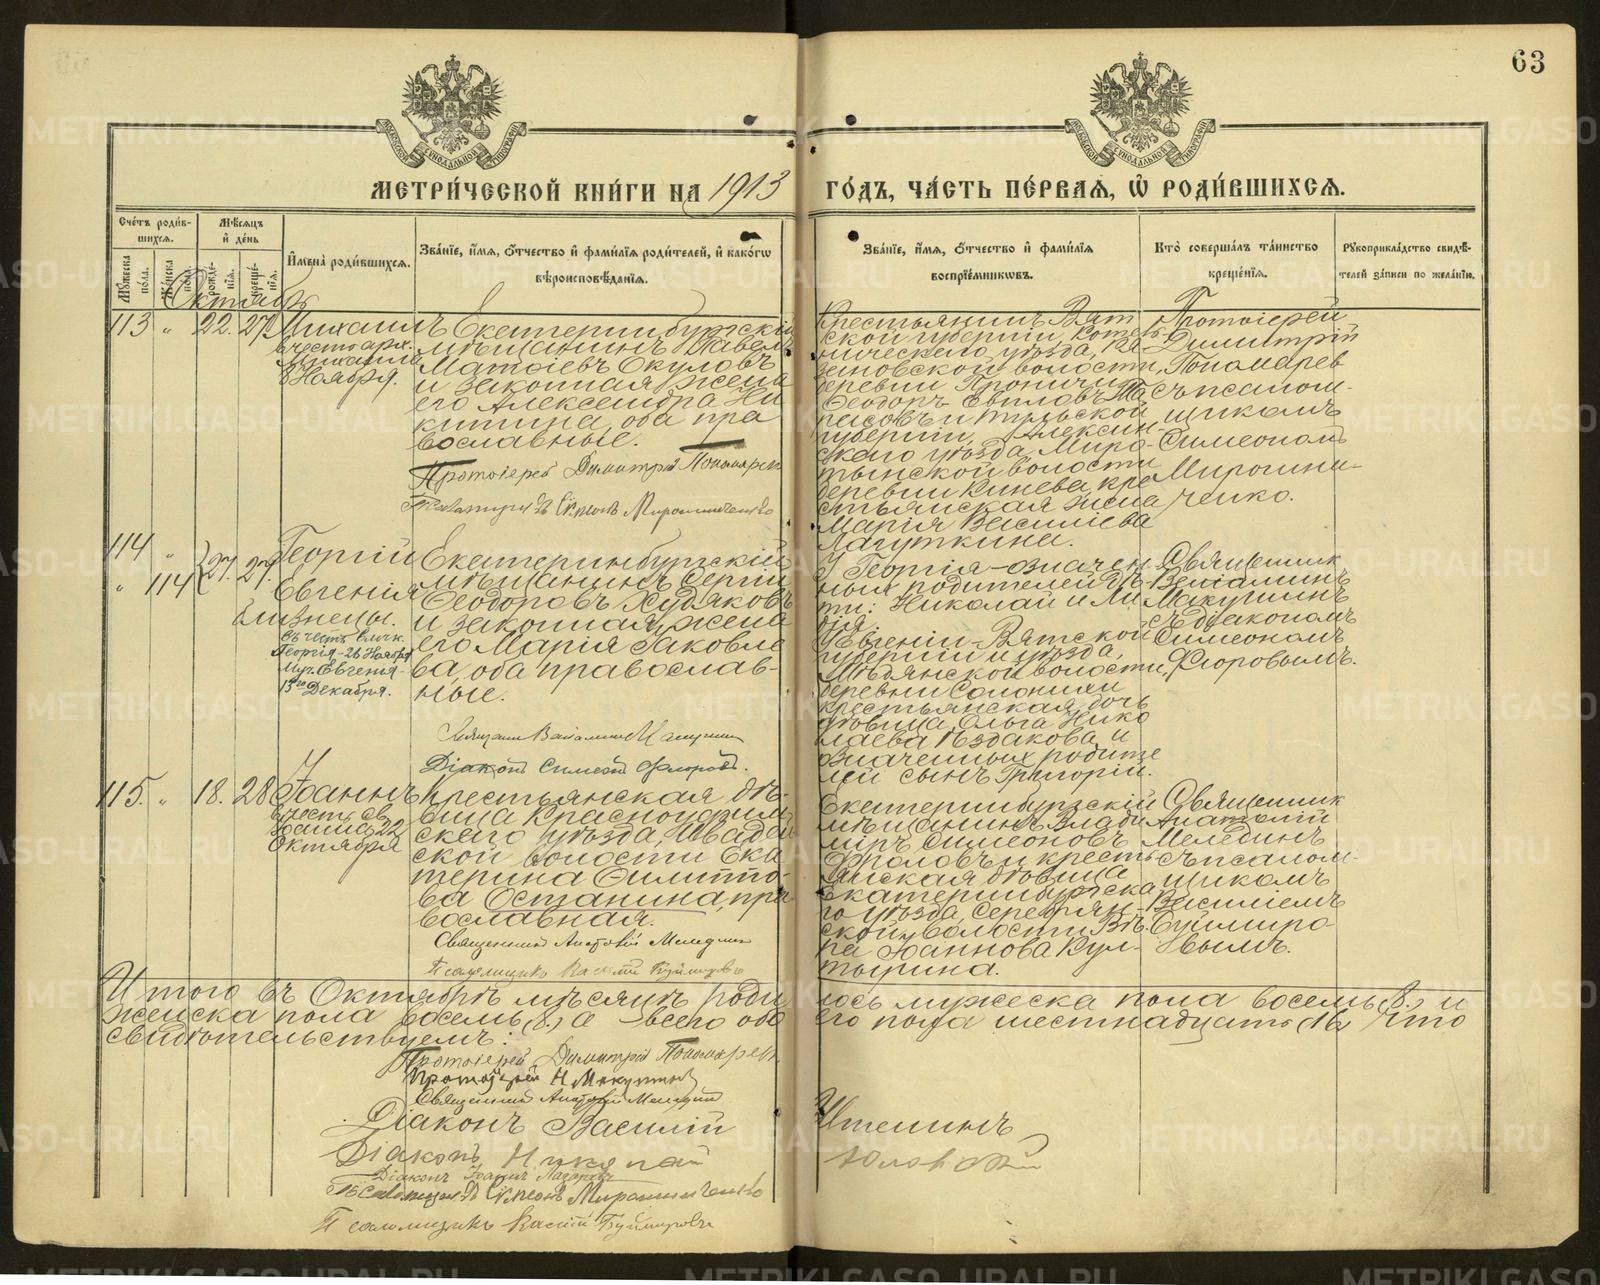 63
МОСКОВСКОЙ СѴНОДАЛЬНОЙ ТИПОГРАФІИ
МОСКОВСКОЙ СѴНОДАЛЬНОЙ ТИПОГРАФІИ
МЕТРИ́ЧЕСКОЙ КНИ́ГИ НА 1913
ГО́ДЪ, ЧА́СТЬ ПЕ́РВАЯ, Ѡ҆ РОДИ́ВШИХСЯ.
Сче́тъ роди́в-
шихся.
Мѣ́сяцъ
и҆ де́нь
Мꙋ́жеска по́ла.
Же́нска по́ла.
рожде́-
нія.
креще́-
нія.
И҆мена̀ роди́вшихся.
Зва́ніе, и҆́мя, ѻ҆́тчество и҆ фами́лія роди́телей, и҆ како́гѡ
вѣроисповѣ́данія.
Зва́ніе, и҆́мя, ѻ҆́тчество и҆ фами́лія
воспріе́мниковъ.
Кто̀ соверша́лъ та́инство
креще́нія.
Рꙋкоприкла́дство свидѣ́-
телей за́писи по жела́нію.
Октябрь
113 " 22. 27.
Михаилъ
въ честь арх.
Михаила
8 Ноября.
Екатеринбургскій
мѣщанинъ Павелъ
Матѳіевъ Окуловъ
и законная жена
его Александра Ни
китина, оба пра
вославные.
Протоіерей Димитрій Пономарев
Псаломщикъ Сѵмеонъ Мирошниченко
Крестьянинъ Вят
ской губерніи, Котель
ническаго уѣзда,
волости,
деревни
Ѳеодоръ Та
расовъ и Тульской
губерніи, Алексин
скаго уѣзда, Миро
тынской волости
деревни Кинева, кре
стьянская жена
Марія Василіева
Лагуткина.
Протоіерей
Димитрій
Пономарев
съ псалом-
щикомъ
Симеономъ
Мирошни-
ченко.
114 " 27. 27.
" 114
Георгій
Евгенія
близнецы.
въ честь Влмк.
Георгія - 26 Ноября
Муч. Евгенія -
13го Декабря.
Екатеринбургскій
мѣщанинъ Сергій
Ѳеодоровъ Худяковъ
и законная жена
его Марія Іаковле
ва, оба православ-
ные.
Священник Веніамин Макушин
Діаконъ Симеон Флоровъ.
У Георгія - означен
ныхъ родителей дѣ-
ти: Николай и Ли
дія.
У Евгеніи - Вятской
губерніи и уѣзда,
Мѣдянской волости,
деревни Солонихи
крестьянская дочь
дѣвица, Ольга Нико
лаева и
означенныхъ родите
лей сынъ Григорій.
Священник
Веніаминъ
Макушинъ
съ діакономъ
Симеономъ
Флоровымъ.
115. " 18. 28
Іоаннъ
въ честь св.
Іоанна 22
Октября
Крестьянская дѣ-
вица Красноуфим
скаго уѣзда,
ской волости Ека
терина Филиппо-
ва Останина, пра
вославная.
Священникъ Анатолій Меледин
Псаломщикъ Василій Буймировъ
Екатеринбургскій
мѣщанинъ Влади
міръ Симеоновъ
Фроловъ и кресть
янская дѣвица
Екатеринбургска
го уѣзда, Серебрян-
ской волости Вѣ-
ра Іоаннова Кул-
тышина.
Священник
Анатолій
Мелединъ
съ псалом-
щикомъ
Василіемъ
Буймиро-
вымъ.
Итого въ Октябрѣ мѣсяцѣ роди
лось мужеска пола восемь (8.) и
женска пола восемь (8.) а всего обо
его пола шестнадцать (16) Что
свидѣтельствуемъ:
Протоіерей Димитрій Пономарев
Протоіерей Н Макушинъ
Священникъ Анатолій Меледин
Діаконъ Василій
Діаконъ Николай
Діаконъ Іоаннъ
Псаломщикъ Сѵмеонъ Мирошниченко
Псаломщикъ Василій Буймировъ
METRIKI.GASO-URAL.RU